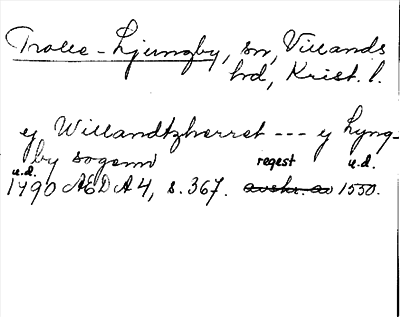 Trolle-Ljungby, sn, Villands
hd, Krist. l.
ej Willandtzherret --- ej Lyng-
by sogenn
regest u.d.
u.d.
1490 ÆDA 4, s. 367. avskr. av 1550.